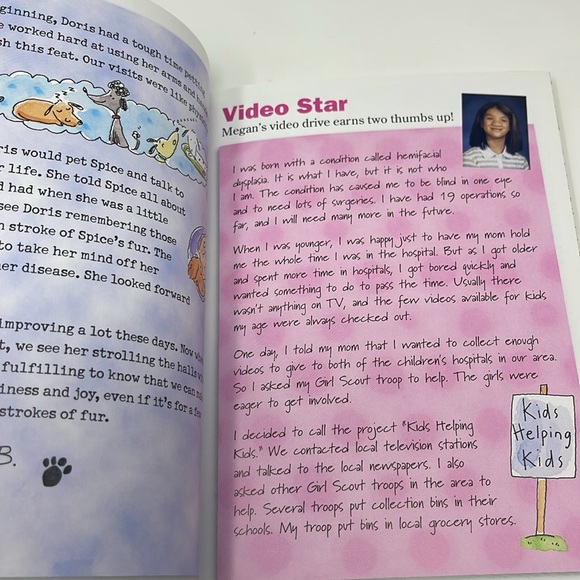 ginning, Doris had a tough time petting
worked hard at using her arms and
this feat. Our visits were like
ris would pet Spice and talk to
r life. She told Spice all about
d had when she was a little
see Doris remembering those
n stroke of Spice's fur. The
to take her mind off her
her disease. She looked forward
improving a lot these days. Now
t, we see her strolling the halls
fulfilling to know that we can
iness and joy, even if it's for a
strokes of fur.
B.
Video Star
Megan's video drive earns two thumbs up!
I was born with a condition called hemifacial
dysplasia. It is what I have, but it is not who
I am. The condition has caused me to be blind in one eye
and to need lots of surgeries. I have had 19 operations so
far, and I will need many more in the future.
When I was younger, I was happy just to have my mom hold
me the whole time I was in the hospital. But as I got older
and spent more time in hospitals, I got bored quickly and
wanted something to do to pass the time. Usually there
wasn't anything on TV, and the few videos available for kids
my age were always checked out.
One day, I told my mom that I wanted to collect enough
videos to give to both of the children's hospitals in our area.
So I asked my Girl Scout troop to help. The girls were
eager to get involved.
I decided to call the project "Kids Helping
Kids." We contacted local television stations
and talked to the local newspapers. I also
asked other Girl Scout troops in the area to
help. Several troops put collection bins in their
schools. My troop put bins in local grocery stores.
Kids
Helping
Kids